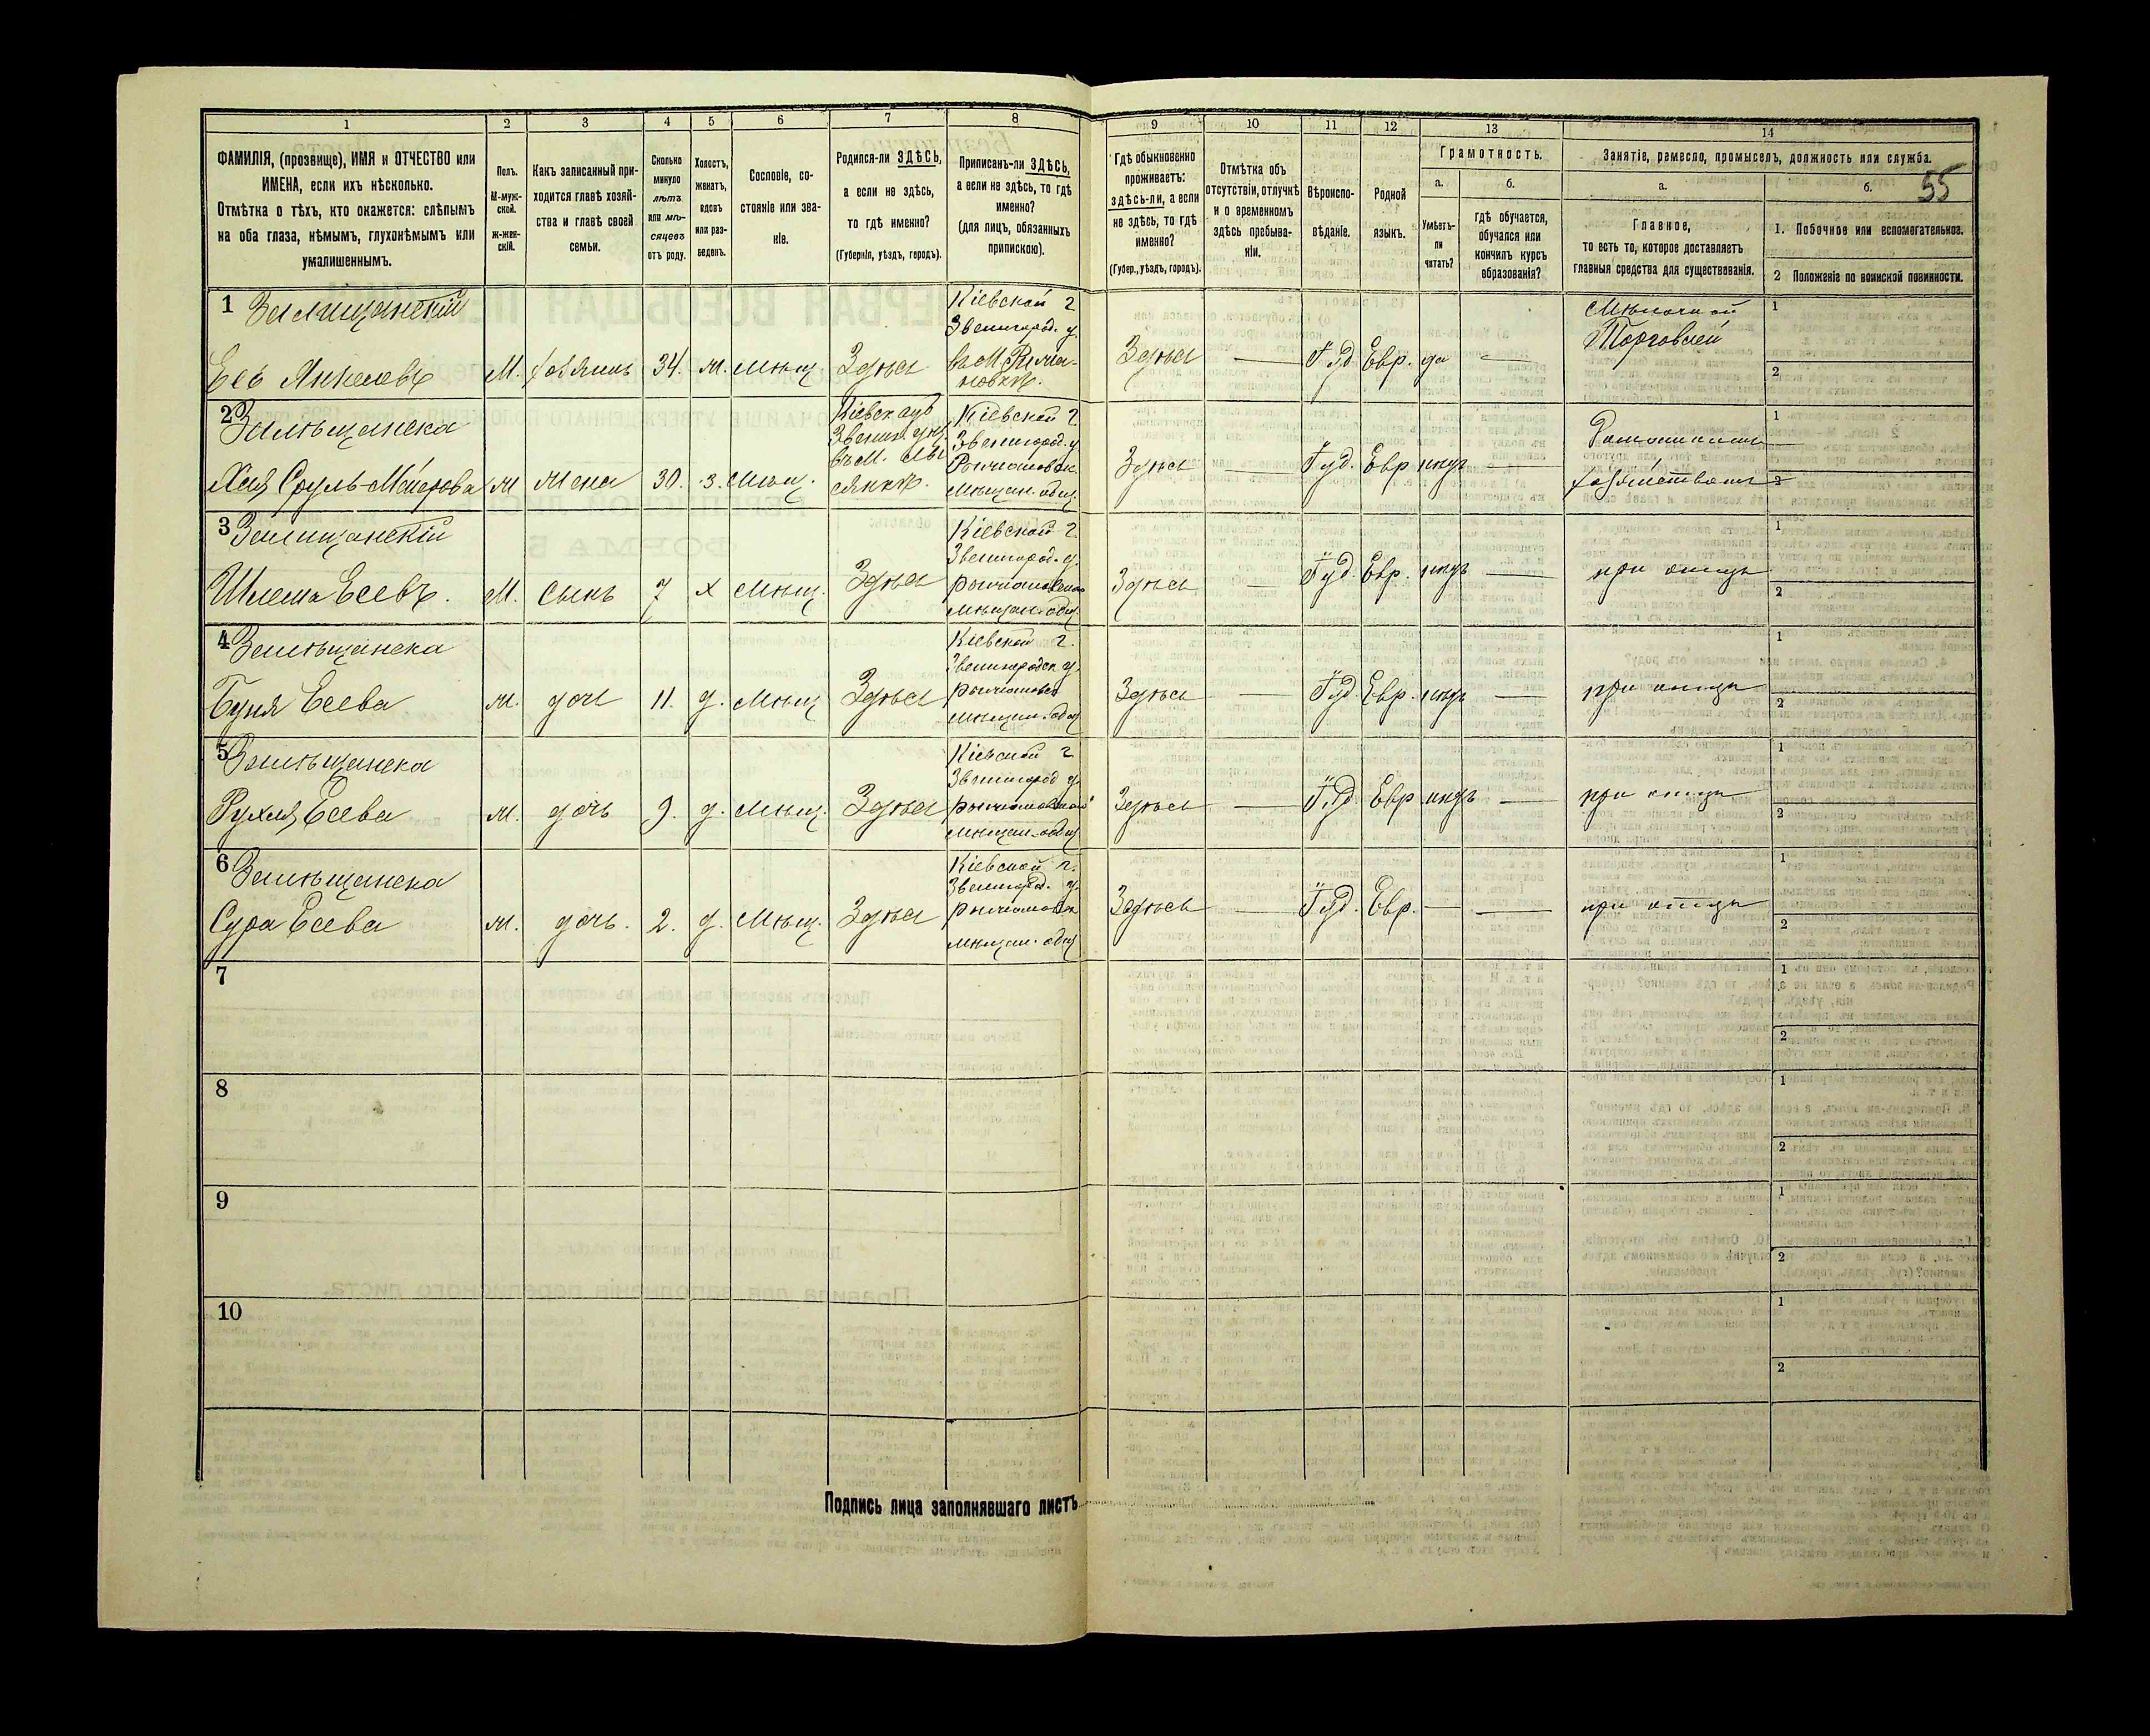 55
1 2 3 4 5 6 7 8 9 10 11 12 13 14
ФАМИЛІЯ, (прозвище), ИМЯ и ОТЧЕСТВО или
ИМЕНА, если ихъ нѣсколько.
Отмѣтка о тѣхъ, кто окажется: слѣпымъ
на оба глаза, нѣмымъ, глухонѣмымъ или
умалишеннымъ.
Полъ.
М-муж-
ской.
ж-жен-
скій.
Какъ записанный при-
ходится главѣ хозяй-
ства и главѣ своей
семьи.
Сколько
минуло
лѣтъ
или мѣ-
сяцевъ
отъ роду.
Холостъ,
женатъ,
вдовъ
или раз-
веденъ.
Сословіе, со-
стояніе или зва-
ніе.
Родился-ли ЗДѢСЬ,
а если не здѣсь,
то гдѣ именно?
(Губернія, уѣздъ, городъ).
Приписанъ-ли ЗДѢСЬ,
а если не здѣсь, то гдѣ
именно?
(для лицъ, обязанныхъ
припискою).
Гдѣ обыкновенно
проживаетъ:
здѣсь-ли, а если
не здѣсь, то гдѣ
именно?
(Губер., уѣздъ, городъ).
Отмѣтка объ
отсутствіи, отлучкѣ
и о временномъ
здѣсь пребыва-
ніи.
Вѣроиспо-
вѣданіе.
Родной
языкъ.
Грамотность.
а.
Умѣетъ-
ли
читать?
б.
гдѣ обучается,
обучался или
кончилъ курсъ
образованія?
Занятіе, ремесло, промыселъ, должность или служба.
а.
Главное,
то есть то, которое доставляетъ
главныя средства для существованія.
б.
1. Побочное или вспомогательное.
2 Положеніе по воинской повинности.
1 Залищанскій
Есъ Янкелевъ М. хозяинъ 34. ж. мѣщ. Здѣсь
Кіевской г
Звенигород. у.
Здѣсь — Іуд. Евр. да —
Мѣлочной
Торговлей
1
2
2 Залѣщанска
Хая Сруль-Меерова м жена 30. з. мѣщ.
Звениг. у
въ м.
Кіевской г
Звенигород. у
мѣщан. общ.
Здѣсь — Іуд. Евр. нѣтъ —
хозяйствомъ
1
2
3 Залищанскій
Шлема Есевъ. М. сынъ 7 х мѣщ. Здѣсь
Кіевской г.
Звенигород. у.
мѣщан. общ.
Здѣсь — Іуд. Евр. нѣтъ — при отцѣ
1
2
4 Залѣщанска
Буня Есева м. дочь 11. д. мѣщ Здѣсь
Кіевской г.
Звенигородск у.
мѣщан. общ
Здѣсь — Іуд. Евр. нѣтъ — при отцѣ
1
2
5 Залѣщанска
Рухля Есева м. дочь 9. д. мѣщ. Здѣсь
Кіевской г
Звенигород у.
мѣщан. общ
Здѣсь — Іуд. Евр нѣтъ — при отцѣ
1
2
6 Залѣщанска
Сура Есева м. дочь. 2. д. мѣщ. Здѣсь
Кіевской г.
Звенигород. у.
мѣщан. общ
Здѣсь — Іуд. Евр. — — при отцѣ
1
2
7
1
2
8
1
2
9
1
2
10
1
2
Подпись лица заполнявшаго листъ